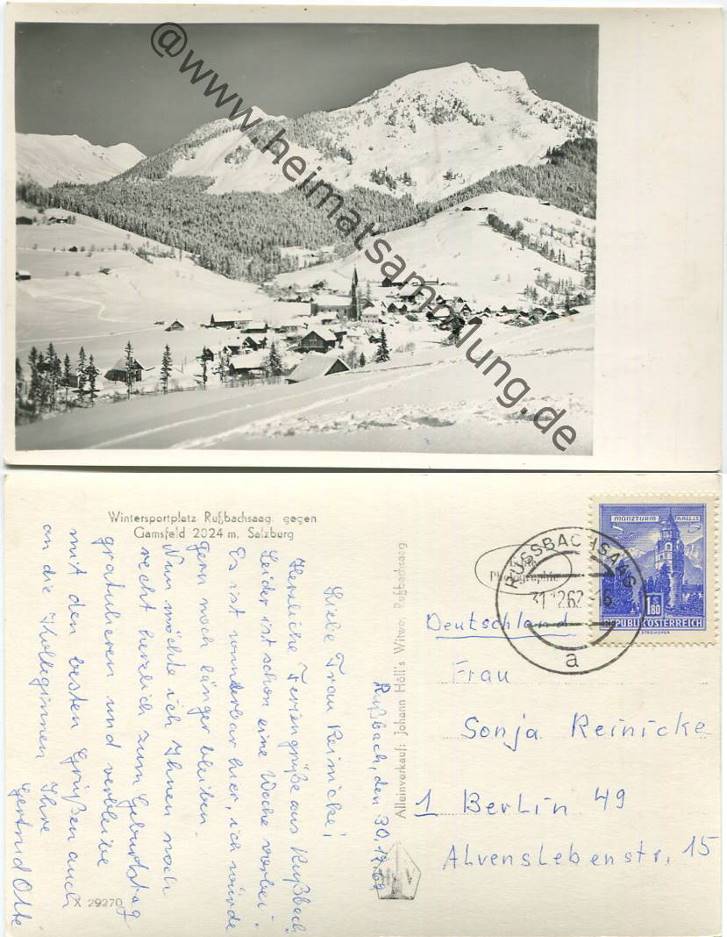 @www.heimatsammlung.de
Wintersportplatz Rußbachsaag gegen
Gamsfeld 2024 m, Salzburg
Rußbach, den 30.12.62
Liebe Frau Reinicke!
Herzliche Feriengrüße aus Rußbach.
Leider ist schon eine Woche vorbei.
Es ist wunderbar hier, ich würde
gern noch länger bleiben.
Nun möchte ich Ihnen noch
recht herzlich zum Geburtstag
gratulieren und verbleibe
mit den besten Grüßen auch
an die Kolleginnen Ihre
Gertrud Otte
X 29270
Alleinverkauf: Johann Höll's Witwe, Rußbachsaag
Photographie
RUSSBACHSAAG
31.12.62
a
MÜNZTURM HALL
1.80
REPUBLIK ÖSTERREICH
Deutschland
Frau
Sonja Reinicke
1 Berlin 49
Alvenslebenstr. 15